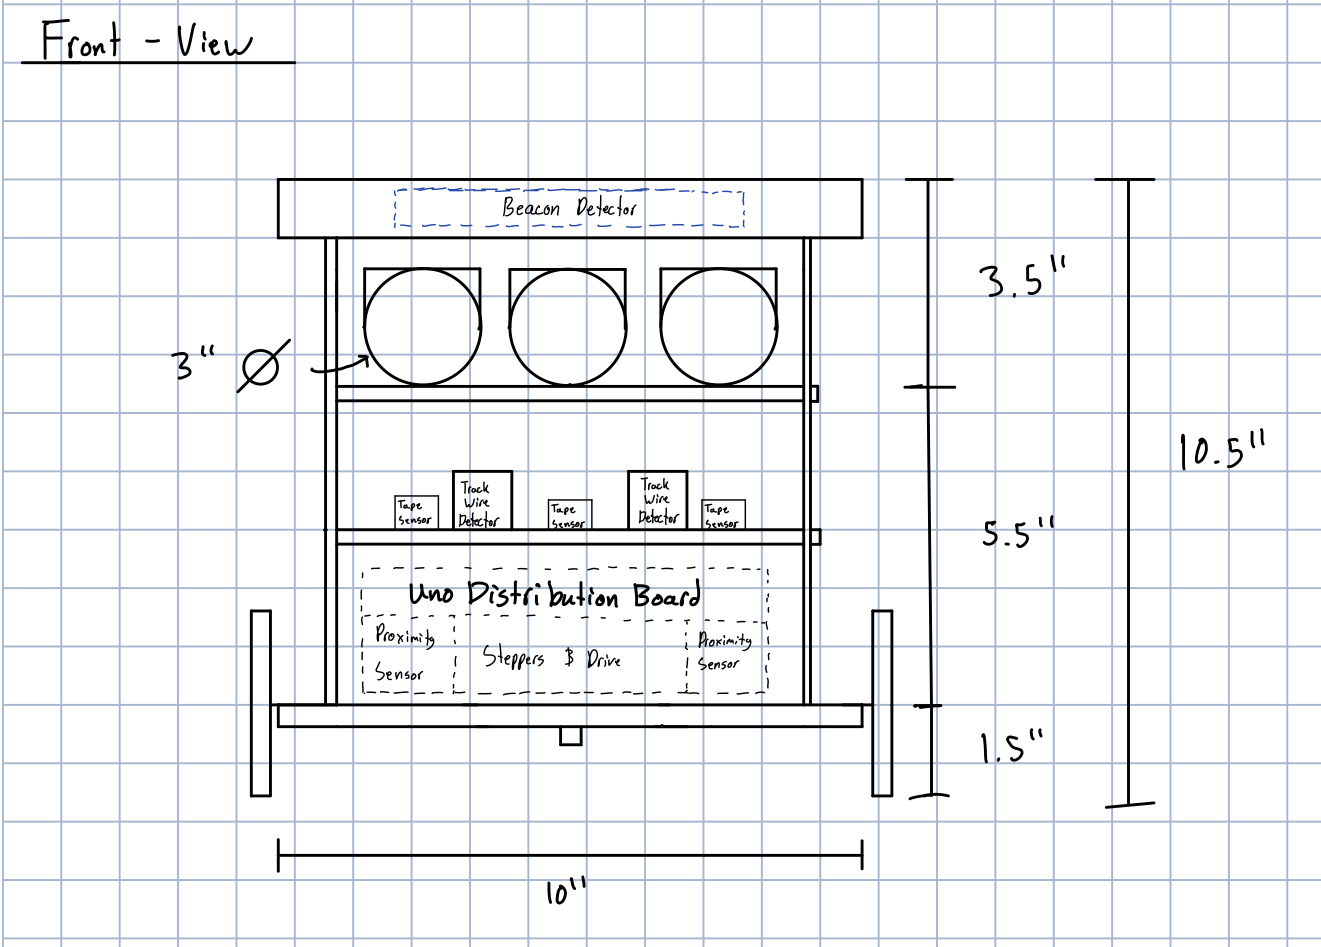 Front - View
Beacon Detector
3.5"
3" Ø
10.5"
Tape
Sensor
Track
Wire
Detector
Tape
Sensor
Track
Wire
Detector
Tape
Sensor
5.5"
Uno Distribution Board
Proximity
Sensor
Steppers & Drive
Proximity
Sensor
1.5"
10"